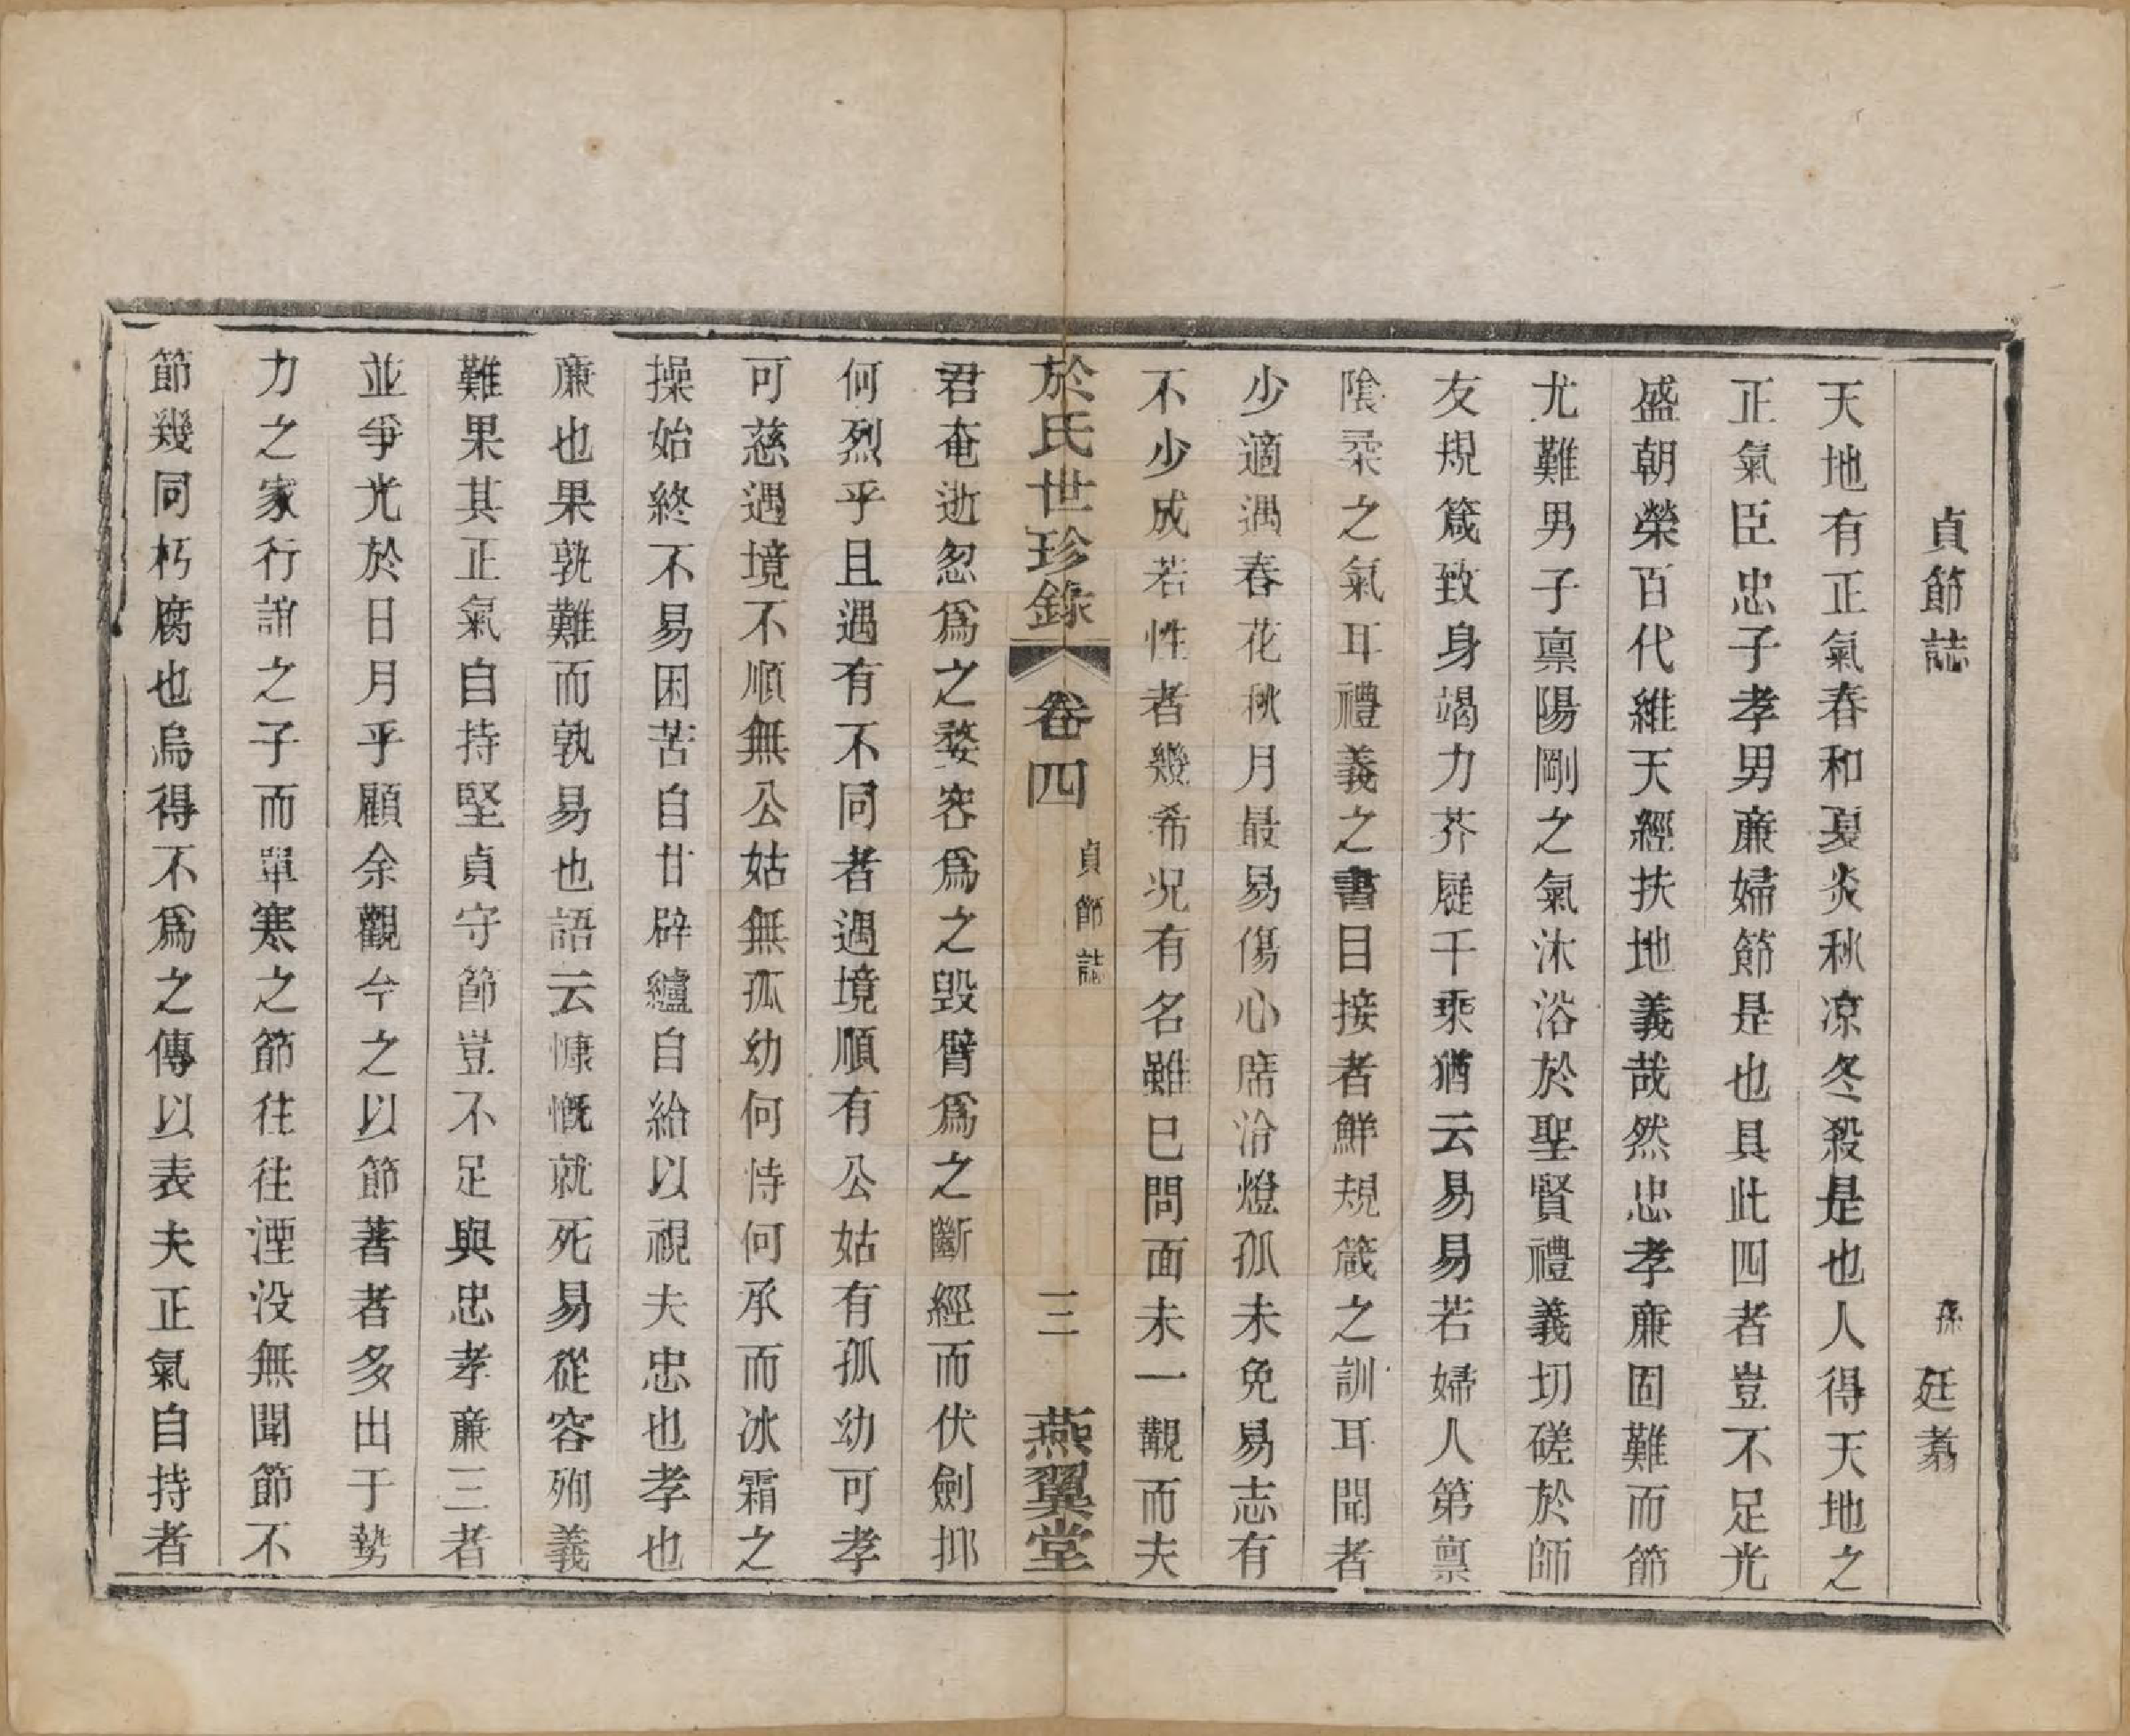 貞節誌　孫廷翥
天地有正氣春和夏炎秋凉冬殺是也人得天地之
正氣臣忠子孝男亷婦節是也具此四者豈不足光
盛朝榮百代維天經扶地義哉然忠孝亷固難而節
尤難男子禀陽剛之氣沐浴於聖賢禮義切磋於師
友規箴致身竭力芥屣千乘猶云易易若婦人第禀
陰柔之氣耳禮義之書目接者鮮規箴之訓耳聞者
少適遇春花秋月最易傷心席冷燈孤未免易志有
不少成若性者幾希况有名雖巳問面未一覿而夫
於氏世珍錄　卷四　貞節誌　三　燕翼堂
君奄逝忽爲之婺容爲之毀臂爲之斷經而伏劍抑
何烈乎且遇有不同者遇境順有公姑有孤幼可孝
可慈遇境不順無公姑無孤幼何恃何承而冰霜之
操始終不易困苦自甘辟纑自給以視夫忠也孝也
亷也果孰難而孰易也語云慷慨就死易從容殉義
難果其正氣自持堅貞守節豈不足與忠孝亷三者
並爭光於日月乎顧余觀今之以節著者多出于勢
力之家行誼之子而單寒之節往往湮没無聞節不
節幾同朽腐也烏得不爲之傳以表夫正氣自持者